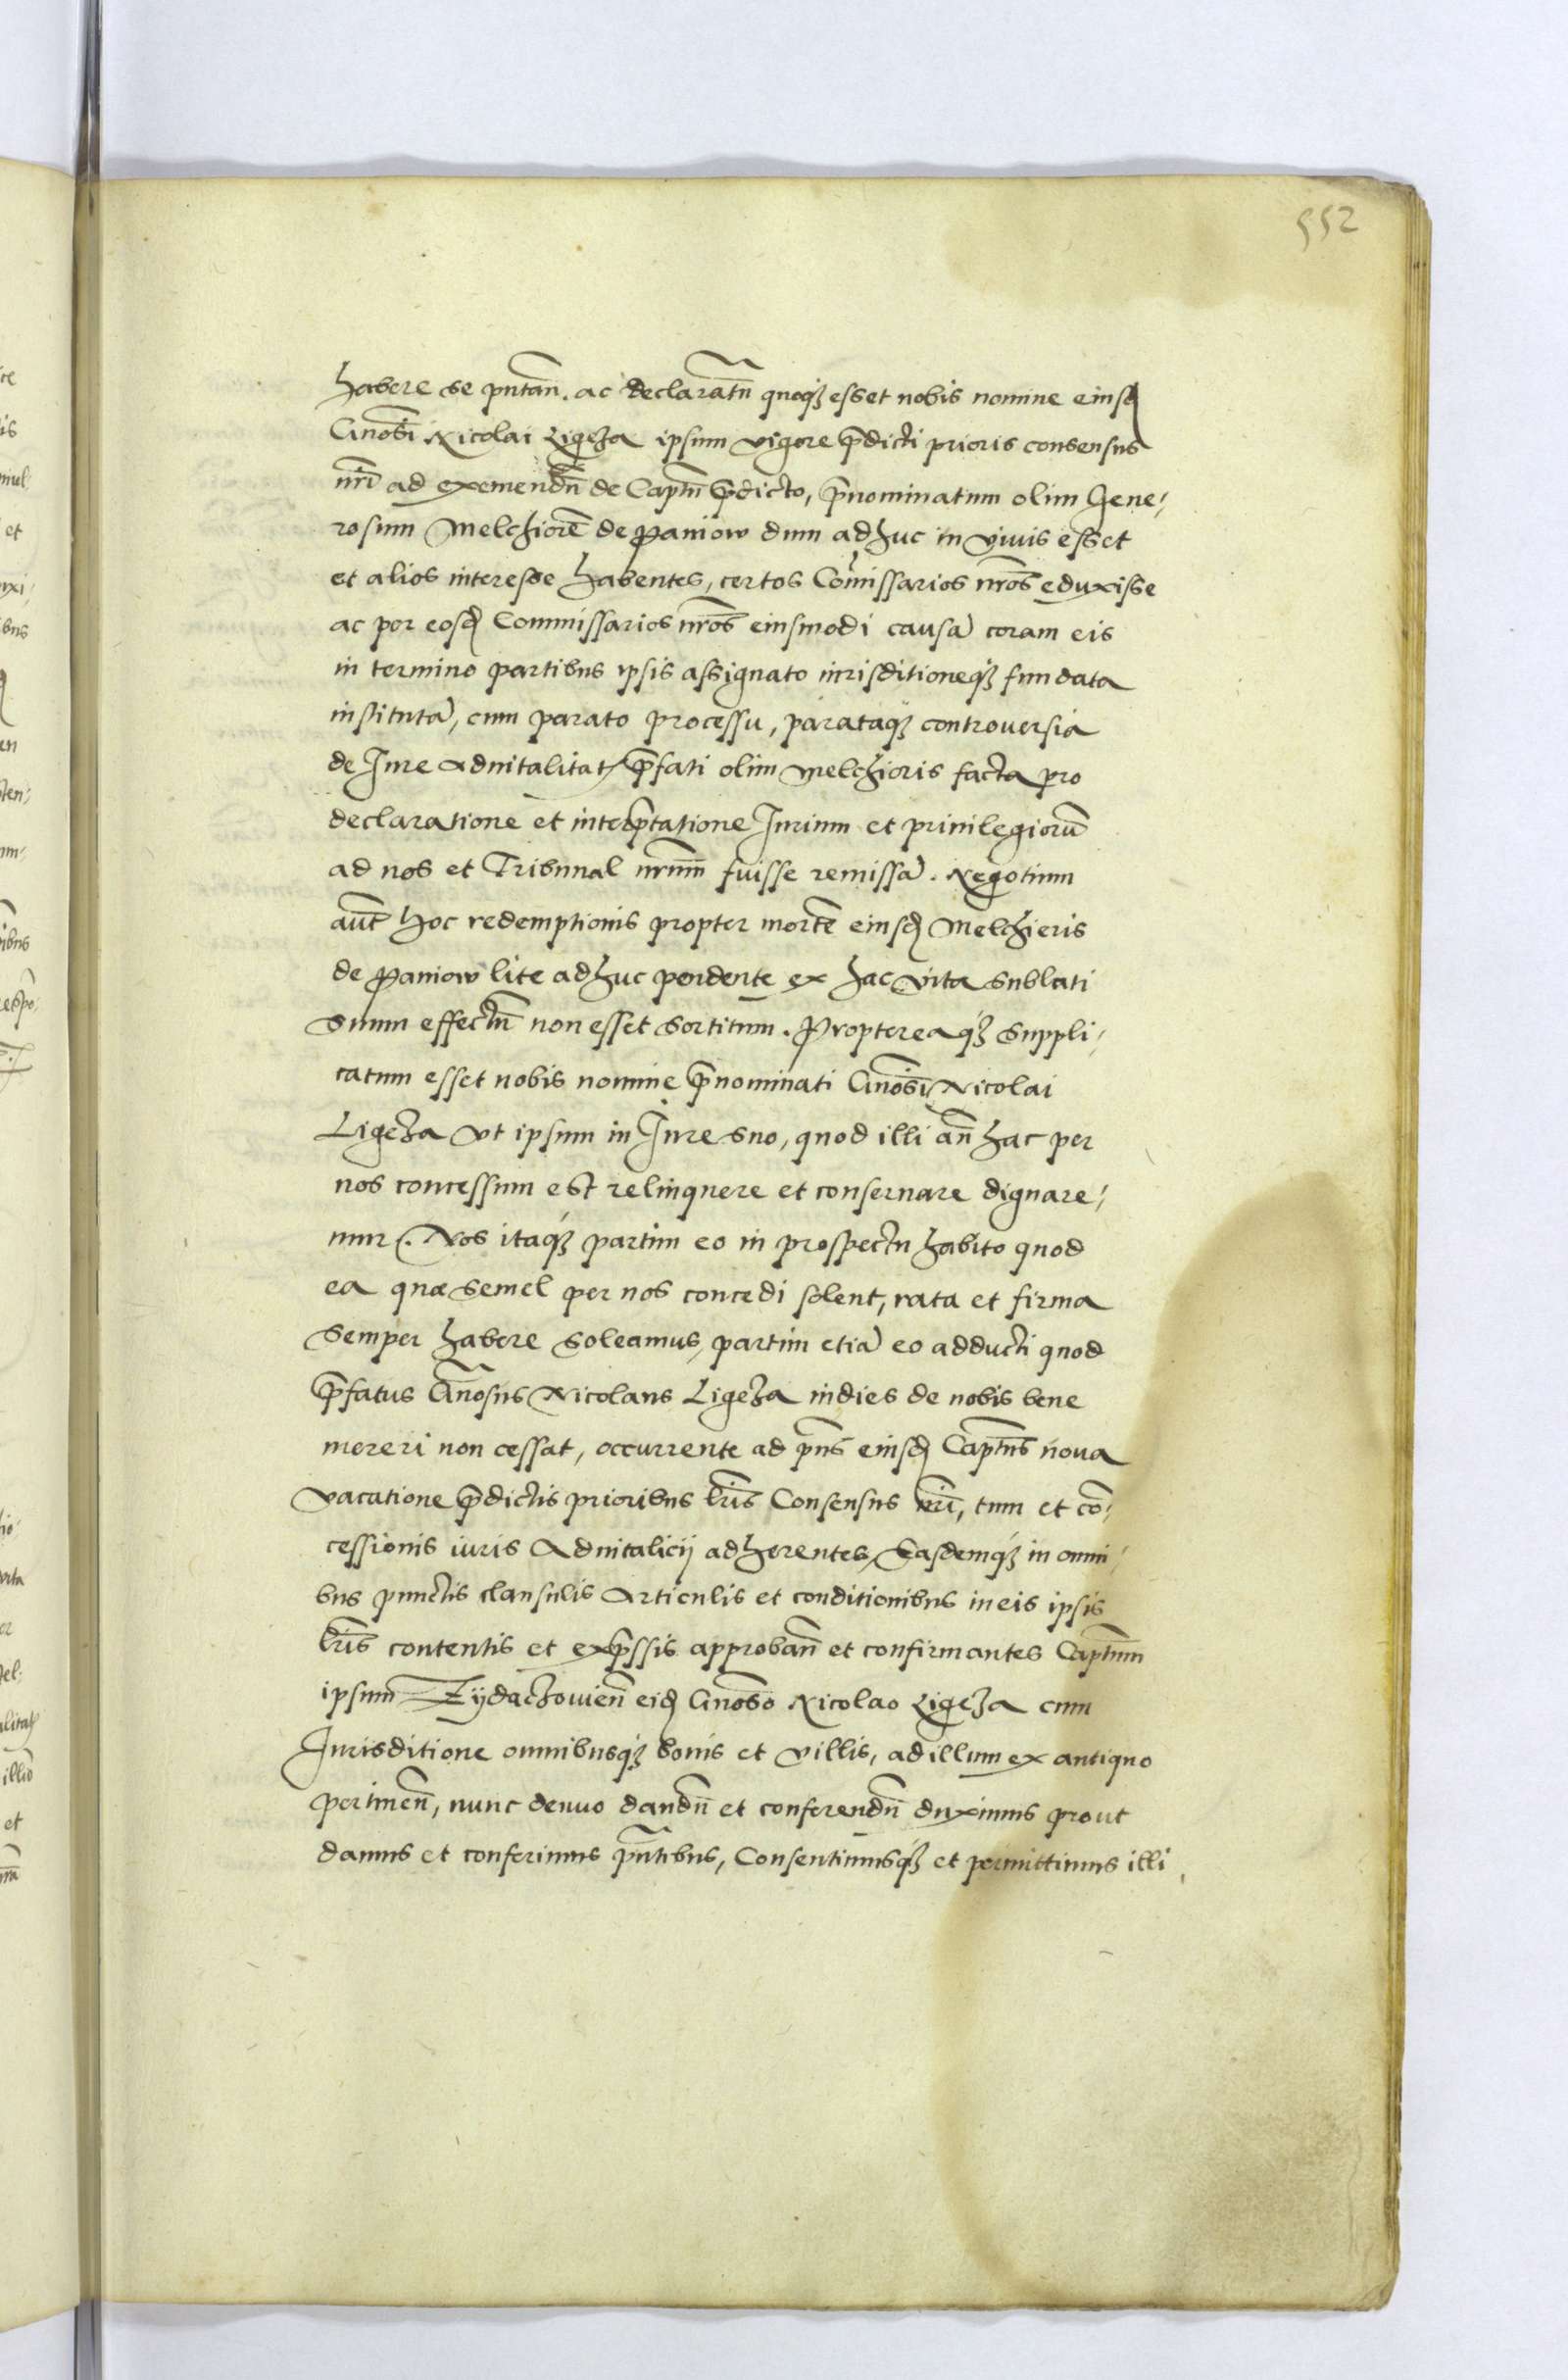 552
habere se putan̄. ac declaratū quoq₃ esset nobis nomine eiusd
Gnosi Nicolai Ligeza ipsum vigore p̄dicti prioris consensus
nrī ad exemendū de Captū p̄dicto, p̄nominatum olim Gene-
rosum Melchiorē de Paniow dum adhuc in viuis esset
et alios interesse habentes, certos Comissarios nros eduxisse
ac per eosd Commissarios nros eiusmodi causā coram eis
in termino partibus ipsis assignato iurisditioneq₃ fundata
institutā, cum parato processu, parataq₃ controuersia
de Iure aduitalitat p̄fati olim Melchioris facta pro
declaratione et interp̄tatione Iurium et priuilegiorū
ad nos et Tribunal nrum fuisse remissā. Negotium
aut̄ hoc redemptionis propter mortē eiusd Melchieris
de Paniow lite adhuc pendente ex hac vita sublati
suum effectū non esset sortitum. Propterea q₃ suppli-
catum esset nobis nomine p̄nominati Gnosi Nicolai
Ligeza vt ipsum in Iure suo, quod illi an̄ hac per
nos concessum est relinquere et conseruare dignare-
mur. Nos itaq₃ partim eo in prospectu habito quod
ea quæ semel per nos concedi solent, rata et firma
semper habere soleamus, partim etiā eo adducti quod
p̄fatus Gnosus Nicolaus Ligeza indies de nobis bene
mereri non cessat, occurrente ad p̄ns eiusd Captūs noua
vacatione p̄dictis prioribus lr̄is Consensus nrī, tum et cō-
cessionis iuris Aduitalicij adherentes, Easdemq₃ in omni-
bus punctis clausulis Articulis et conditionibus in eis ipsis
lr̄is contentis et exp̄ssis approban̄ et confirmantes Captūm
ipsum Zijdachouien̄ eid Gnoso Nicolao Ligeza cum
Iurisditione omnibusq₃ bonis et villis, ad illum ex antiquo
pertinen̄, nunc denuo dandū et conferendū duximus prout
damus et conferimus p̄ntibus, Consentimusq₃ et permittimus illi